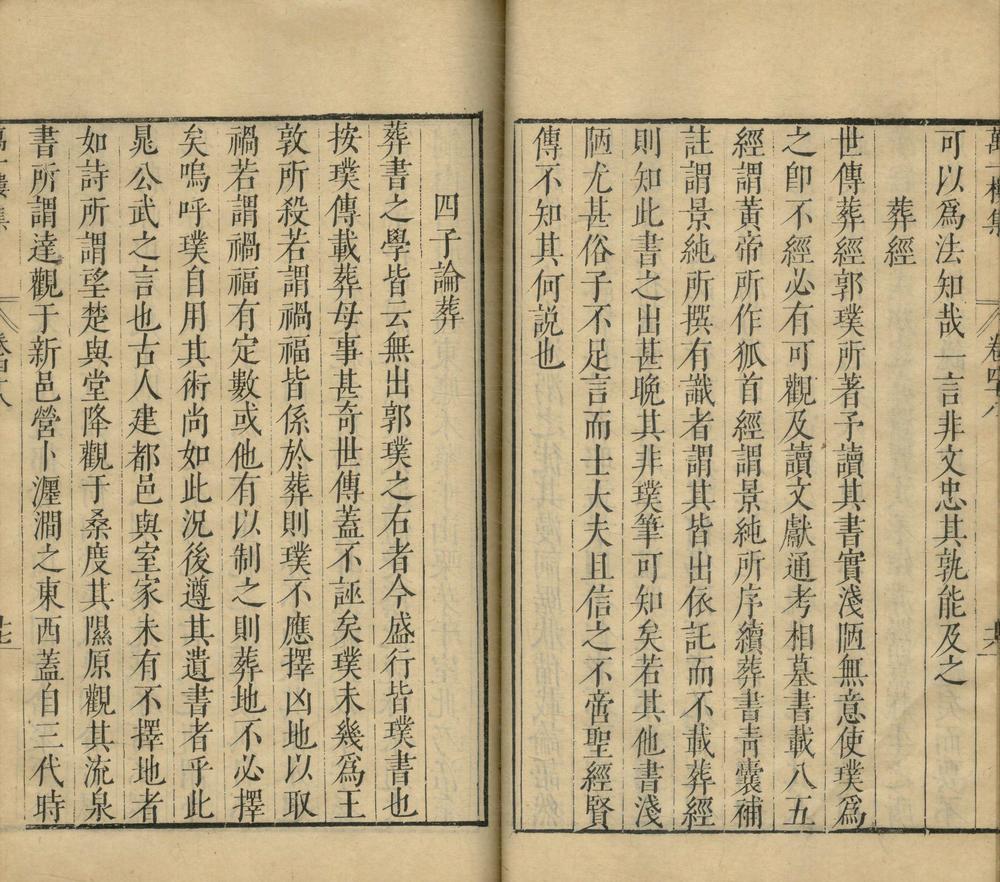 萬一樓集
卷四十八
可以為法知哉一言非文忠其孰能及之
葬經
世傳葬經郭璞所著予讀其書實淺陋無意使璞為
之卽不經必有可觀及讀文獻通考相墓書載八五
經謂黃帝所作狐首經謂景純所序續葬書青囊補
註謂景純所撰有識者謂其皆出依託而不載葬經
則知此書之出甚晚其非璞筆可知矣若其他書淺
陋尤甚俗子不足言而士大夫且信之不啻聖經賢
傳不知其何説也
四子論葬
葬書之學皆云無出郭璞之右者今盛行皆璞書也
按璞傳載葬母事甚奇世傳蓋不誣矣璞未幾為王
敦所殺若謂禍福皆係於葬則璞不應擇凶地以取
禍若謂禍福有定數或他有以制之則葬地不必擇
矣嗚呼璞自用其術尚如此況後遵其遺書者乎此
晁公武之言也古人建都邑與室家未有不擇地者
如詩所謂望楚與堂降觀于桑度其隰原觀其流泉
書所謂達觀于新邑營卜瀍澗之東西蓋自三代時
萬一樓集
卷四十八
十七